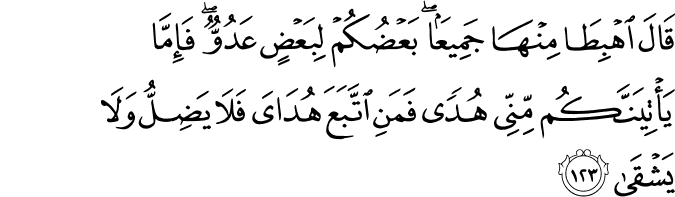 قَالَ ٱهۡبِطَا مِنۡهَا جَمِيعَۢاۖ بَعۡضُكُمۡ لِبَعۡضٍ عَدُوّٞۖ فَإِمَّا
يَأۡتِيَنَّكُم مِّنِّي هُدٗى فَمَنِ ٱتَّبَعَ هُدَايَ فَلَا يَضِلُّ وَلَا
يَشۡقَىٰ ١٢٣